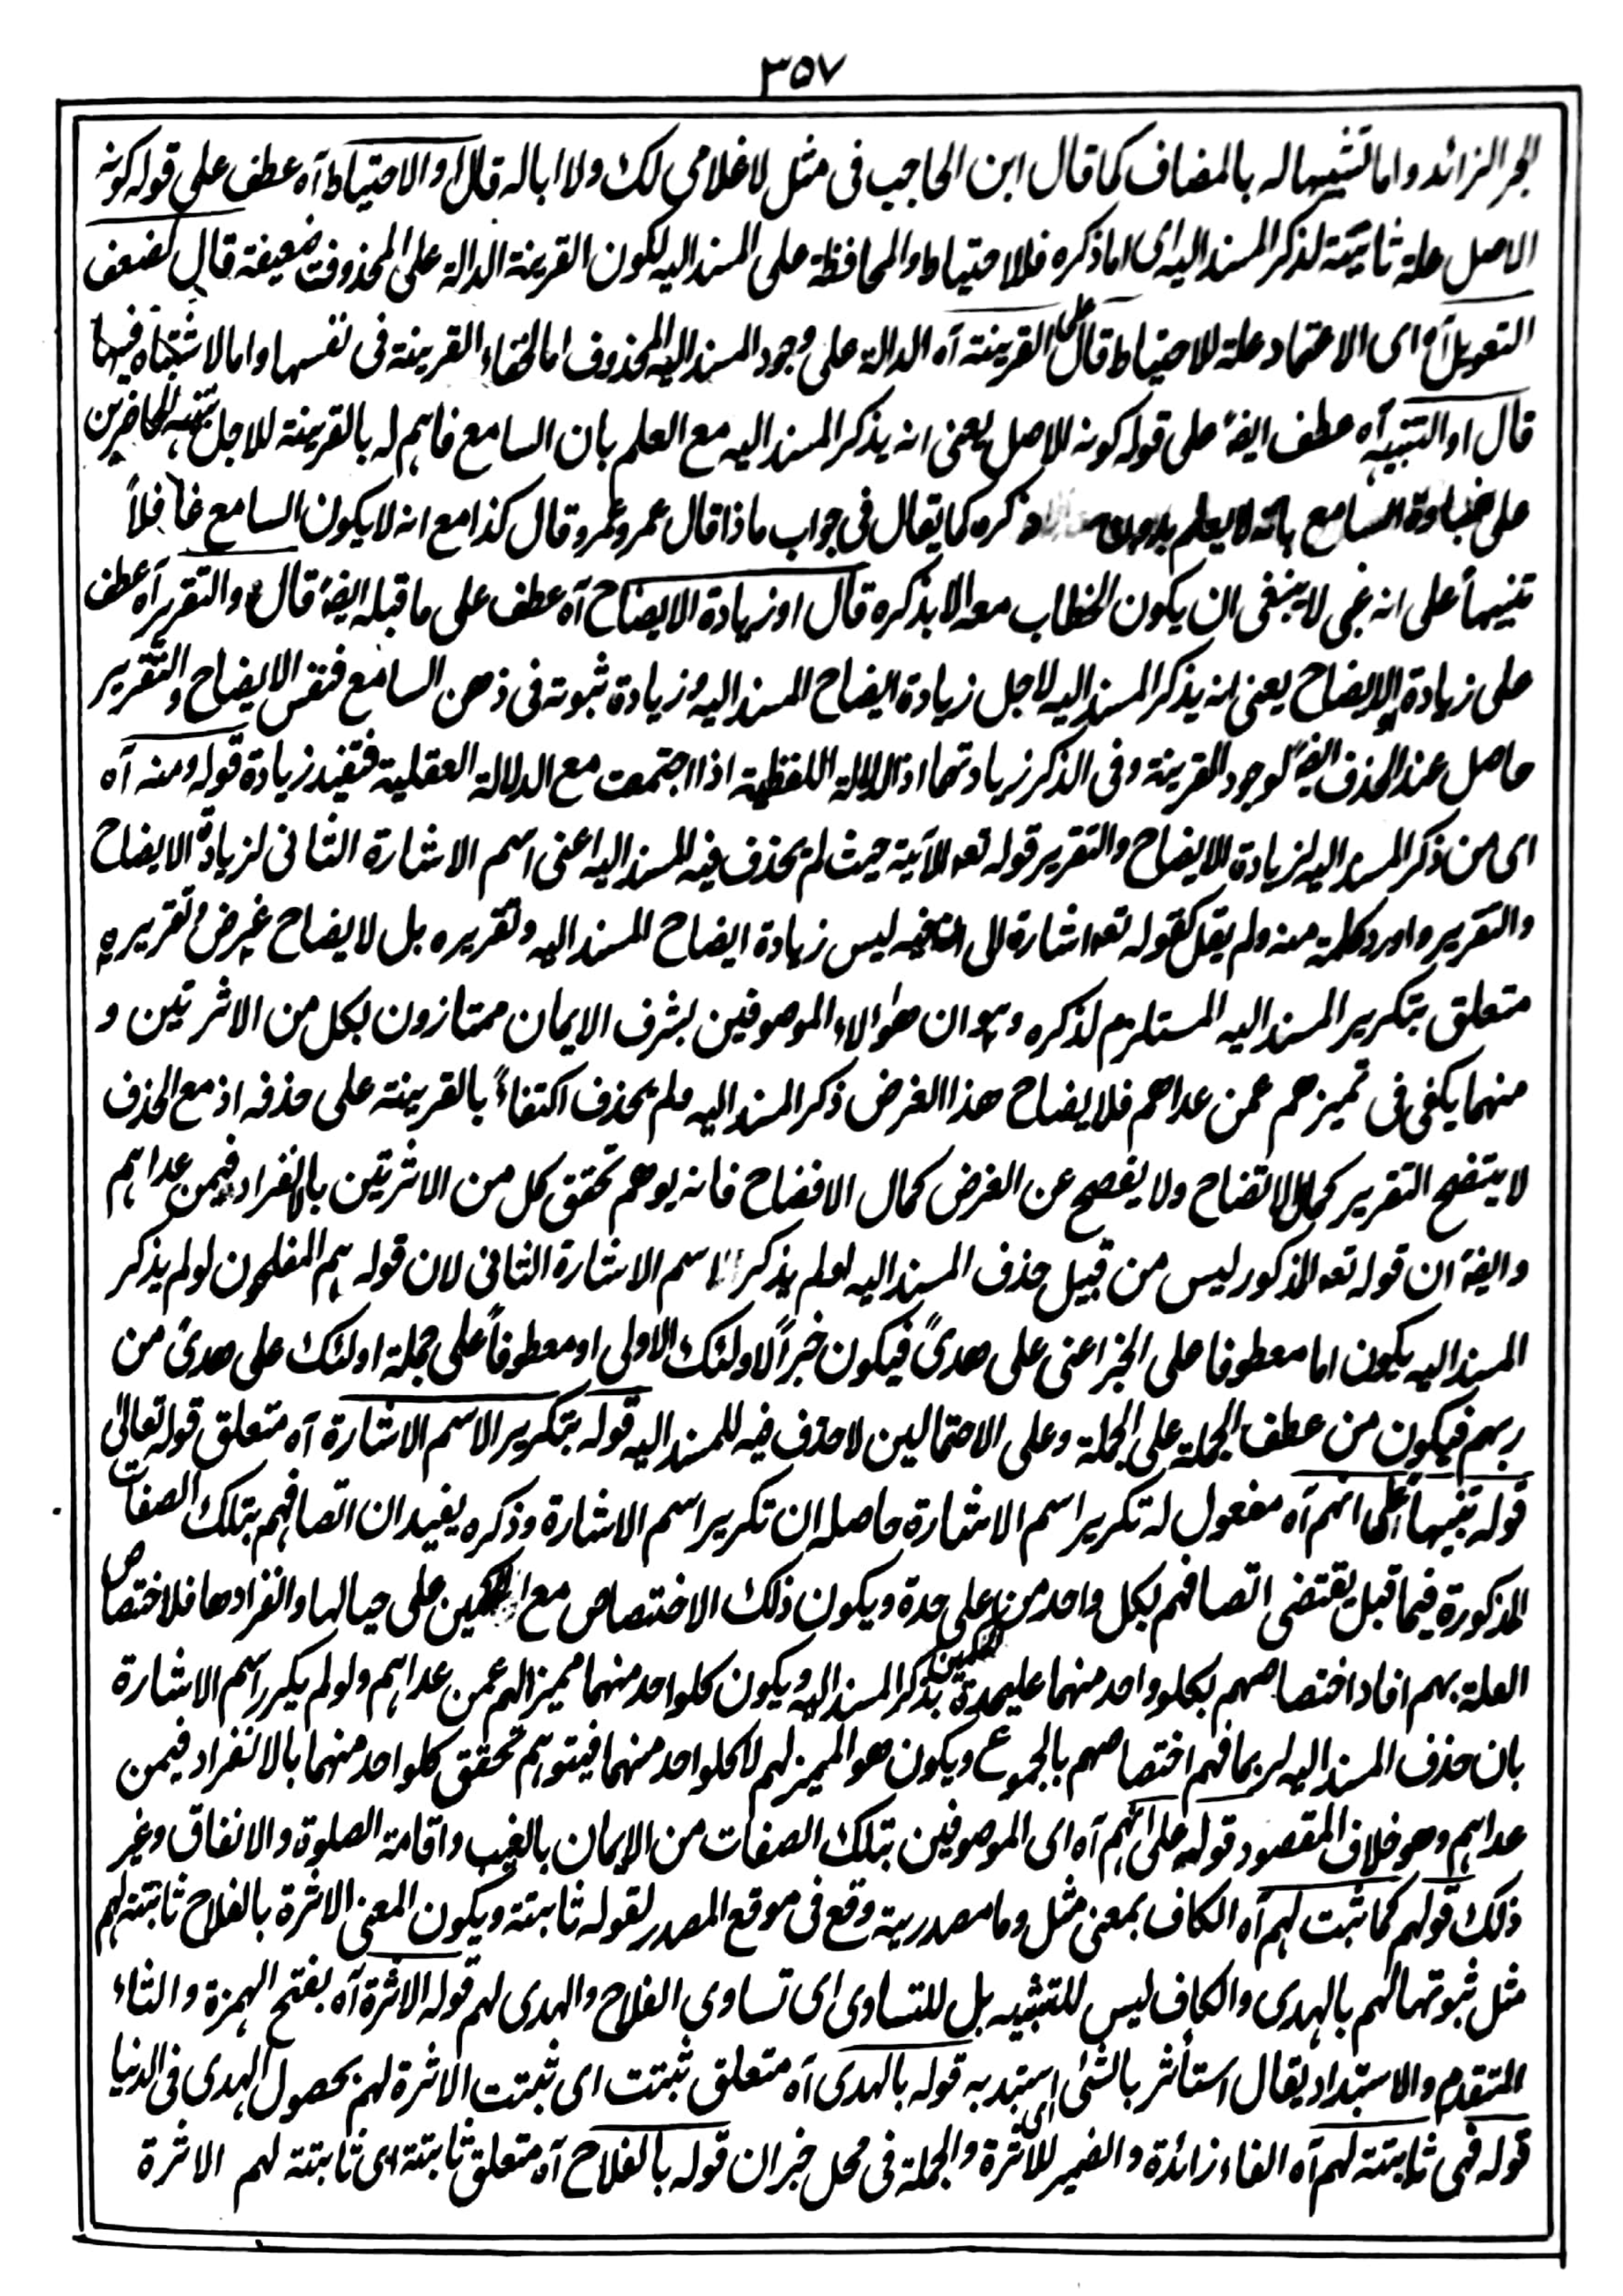 ٣٥٧
الجر الزائد واما تشبيها له بالمضاف كما قال ابن الحاجب فى مثل لاغلامى لك ولا اباله قال او الاحتياط آه عطف على قوله كونه
الاصل علة ثانية لذكر المسند اليه اى اما ذكره فللاحتياط والمحافظة على المسند اليه لكون القرينة الدالة على المحذوف ضعيفة قال لضعف
التعويل آه اى الاعتماد علة للاحتياط قال على القرينة آه الدالة على وجود المسند اليه المحذوف اما لخفاء القرينة فى نفسها واما لاشتباه فيها
قال او التنبيه آه عطف ايضا على قوله كونه للاصل يعنى انه يذكر المسند اليه مع العلم بان السامع فاهم له بالقرينة للاجل تنبيه الحاضرين
على غباوة السامع بانه لا يعلم بدون ذكره كما يقال فى جواب ماذا قال عمرو عمرو قال كذا مع انه لا يكون السامع غافلاً
تنبيهاً على انه غبى لا ينبغى ان يكون الخطاب معه الا بذكره قال او زيادة الايضاح آه عطف على ما قبله ايضا قال والتقرير آه عطف
على زيادة الايضاح يعنى انه يذكر المسند اليه لاجل زيادة ايضاح المسند اليه وزيادة ثبوته فى ذهن السامع فنفس الايضاح والتقرير
حاصل عند الحذف ايضا لوجود القرينة وفى الذكر زيادتهما اذ الدلالة اللفظية اذا اجتمعت مع الدلالة العقلية فتفيد زيادة قوله ومنه آه
اى من ذكر المسند اليه لزيادة الايضاح والتقرير قوله تعه الآية حيث لم يحذف فيه المسند اليه اعنى اسم الاشارة الثانى لزيادة الايضاح
والتقرير واورد كلمة منه ولم يقل كقوله تعه اشارة الى ليس زيادة ايضاح المسند اليه وتقريره بل لايضاح غرض وتقريره
متعلق بتكرير المسند اليه المستلزم لذكره وهو ان هؤلاء الموصوفين بشرف الايمان ممتازون بكل من الاثرتين و
منهما يكفى فى تميزهم عمن عداهم فلايضاح هذا الغرض ذكر المسند اليه ولم يحذف اكتفاءً بالقرينة على حذفه اذ مع الحذف
لا يتضح التقرير كمال الاتضاح ولا يفصح عن الغرض كمال الافضاح فانه يوهم تحقق كل من الاثرتين بالانفراد فيمن عداهم
وايضا ان قوله تعه المذكور ليس من قبيل حذف المسند اليه لو لم يذكر اسم الاشارة الثانى لان قوله هم المفلحون لو لم يذكر
المسند اليه يكون اما معطوفا على الخبر اعنى على هدىً فيكون خبراً لاولئك الاولى او معطوفاً على جملة اولئك على هدىً من
ربهم فيكون من عطف الجملة على الجملة وعلى الاحتمالين لا حذف فيه للمسند اليه قوله بتكرير الاسم الاشارة آه متعلق قوله تعالى
قوله تنبيهاً على انهم آه مفعول له تكرير اسم الاشارة حاصله ان تكرير اسم الاشارة وذكره يفيد ان اتصافهم بتلك الصفات
المذكورة فيما قبل يقتضى اتصافهم بكل واحد من على حدة ويكون ذلك الاختصاص مع على حيالها وانفرادها فلاختصاص
العلة بهم افاد اختصاصهم بكلو واحد منهما عليحدة بذكر المسند اليه ويكون كلواحد منهما مميزا لهم عمن عداهم ولو لم يكرر اسم الاشارة
بان حذف المسند اليه لربما فهم اختصاصهم بالمجموع ويكون هو المميز لهم لا كلواحد منهما فيتوهم تحقق كلواحد منهما بالانفراد فيمن
عداهم وهو خلاف المقصود قوله على انهم آه اى الموصوفين بتلك الصفات من الايمان بالغيب واقامة الصلوة والانفاق وغير
ذلك قولهم كما ثبت لهم آه الكاف بمعنى مثل وما مصدرية وقع فى موقع المصدر لقوله ثابتة ويكون المعنى الاثرة بالفلاح ثابتة لهم
مثل ثبوتها لهم بالهدى والكاف ليس للتشبيه بل للتساوى اى تساوى الفلاح والهدى لهم قوله الاثرة آه بفتح الهمزة والثاء
المتقدم والاستبداد يقال استأثر بالشئ اى استبد به قوله بالهدى آه متعلق ثبتت اى ثبتت الاثرة لهم بحصول الهدى فى الدنيا
قوله فهى ثابتة لهم آه الفاء زائدة والضمير للاثرة والجملة فى محل خبر ان قوله بالفلاح آه متعلق ثابتة اى ثابتة لهم الاثرة